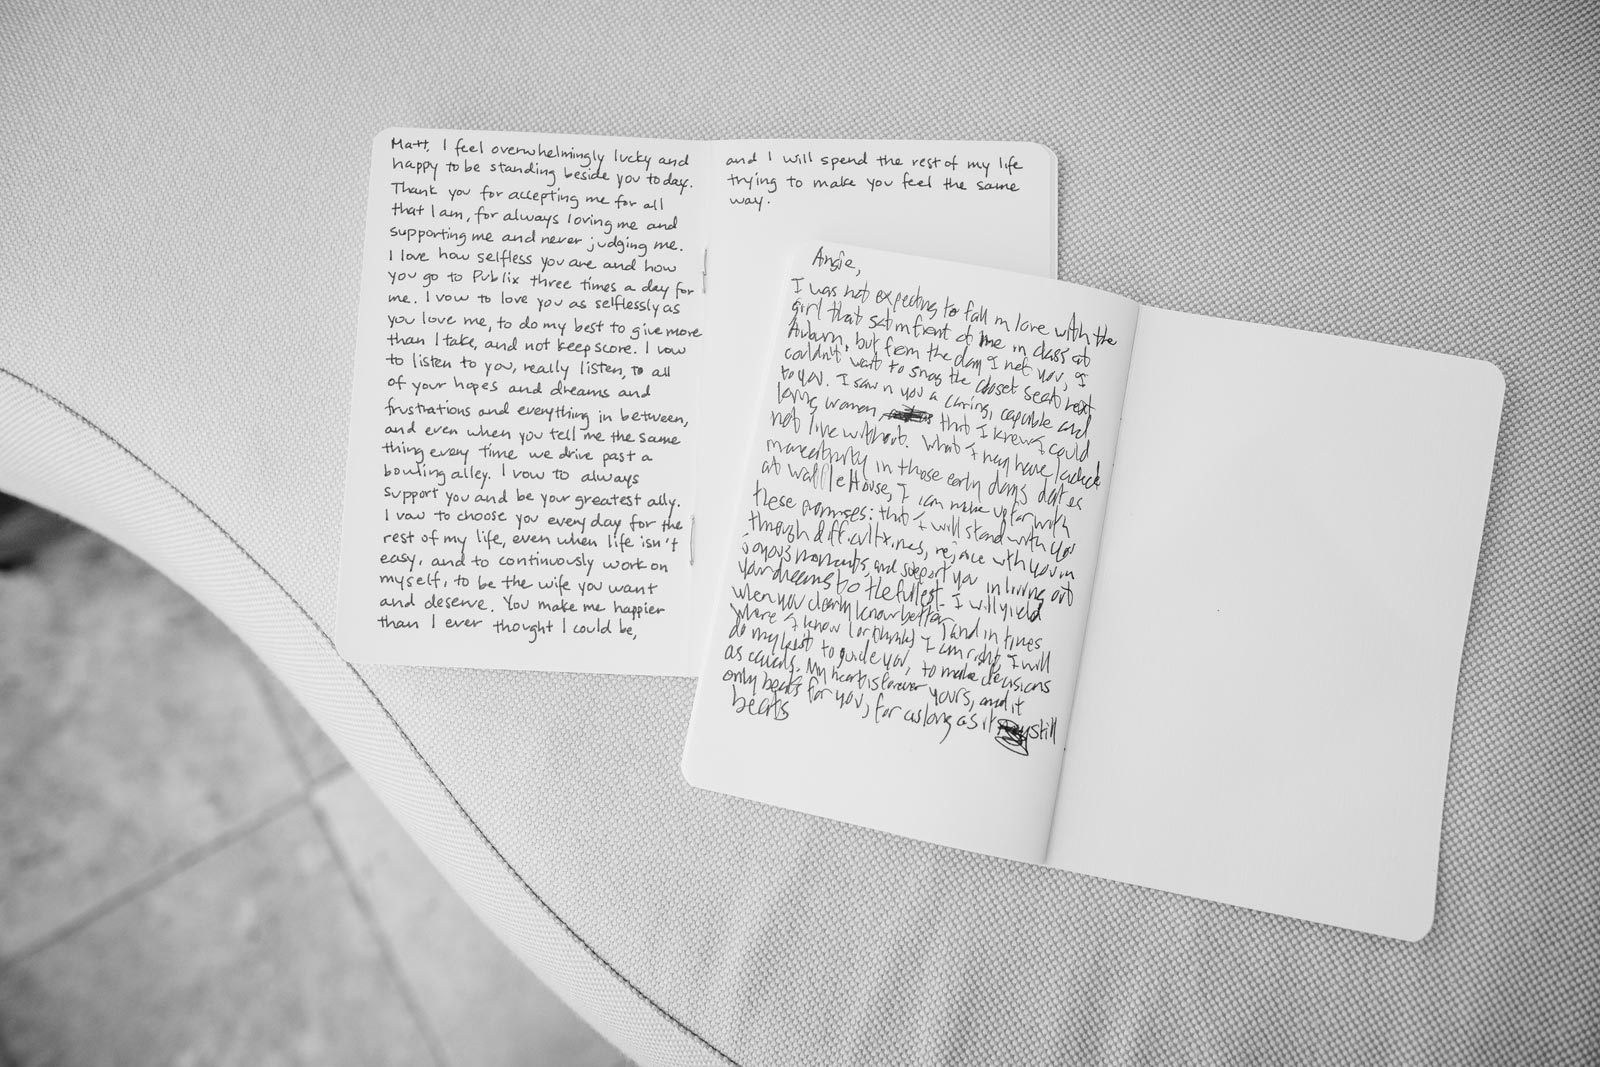 Matt, I feel overwhelmingly lucky and
happy to be standing beside you today.
Thank you for accepting me for all
that I am, for always loving me and
supporting me and never judging me.
I love how selfless you are and how
you go to Publix three times a day for
me. I vow to love you as selflessly as
you love me, to do my best to give more
than I take, and not keep score. I vow
to listen to you, really listen, to all
of your hopes and dreams and
frustrations and everything in between,
and even when you tell me the same
thing every time we drive past a
bowling alley. I vow to always
support you and be your greatest ally.
I vow to choose you every day for the
rest of my life, even when life isn't
easy, and to continuously work on
myself, to be the wife you want
and deserve. You make me happier
than I ever thought I could be,
and I will spend the rest of my life
trying to make you feel the same
way.
Angie,
I was not expecting to fall in love with the
girl that sat in front of me in class at
Auburn, but from the day I met you, I
couldn't wait to snag the closest seat next
to you. I saw n you a caring, capable and
loving women, that I knew I could
not live without. What I may have lacked
in those early days dates
at Waffle House, I can make up for with
these promises: that I will stand with you
through difficult times, rejoice with you in
joyous moments, and support you in living out
your dreams to the fullest. I will yield
when you clearly know better, and in times
where I know (or think) I am right, I will
do my best to guide you, to make decisions
as equals. My heart is forever yours, and it
only beats for you, for as long as it still
beats